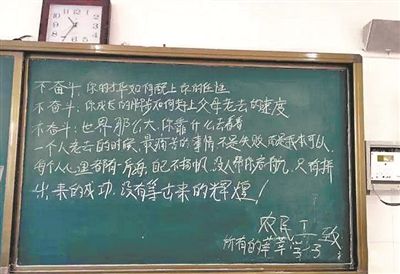 不奋斗，你的才华如何配上你的任性
不奋斗，你成长的脚步如何赶上父母老去的速度
不奋斗：世界那么大，你靠什么去看看
一个人老去的时候，最痛苦的事情，不是失败，而是我本可以
每个人心里都有一片海，自己不扬帆，没人帮你启航，只有拼
出来的成功，没有等出来的辉煌！
农民工致
所有的莘莘学子